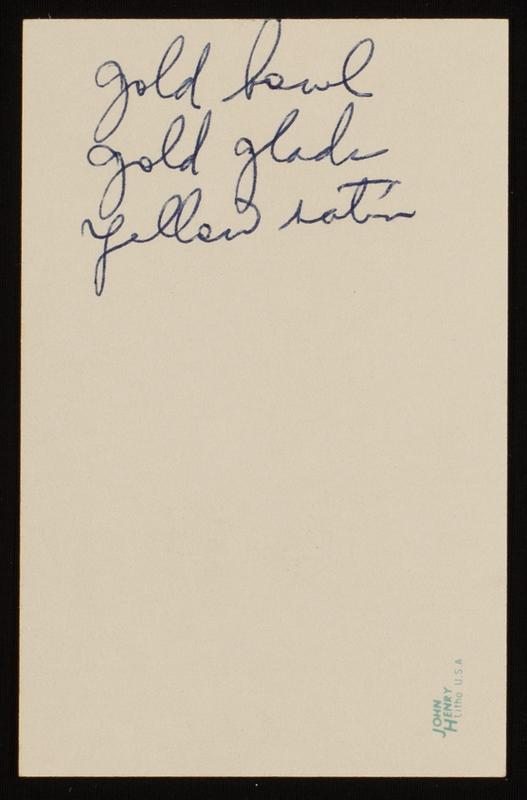 gold bowl
gold glads
yellow satin
JOHN
HENRY
Litho U.S.A